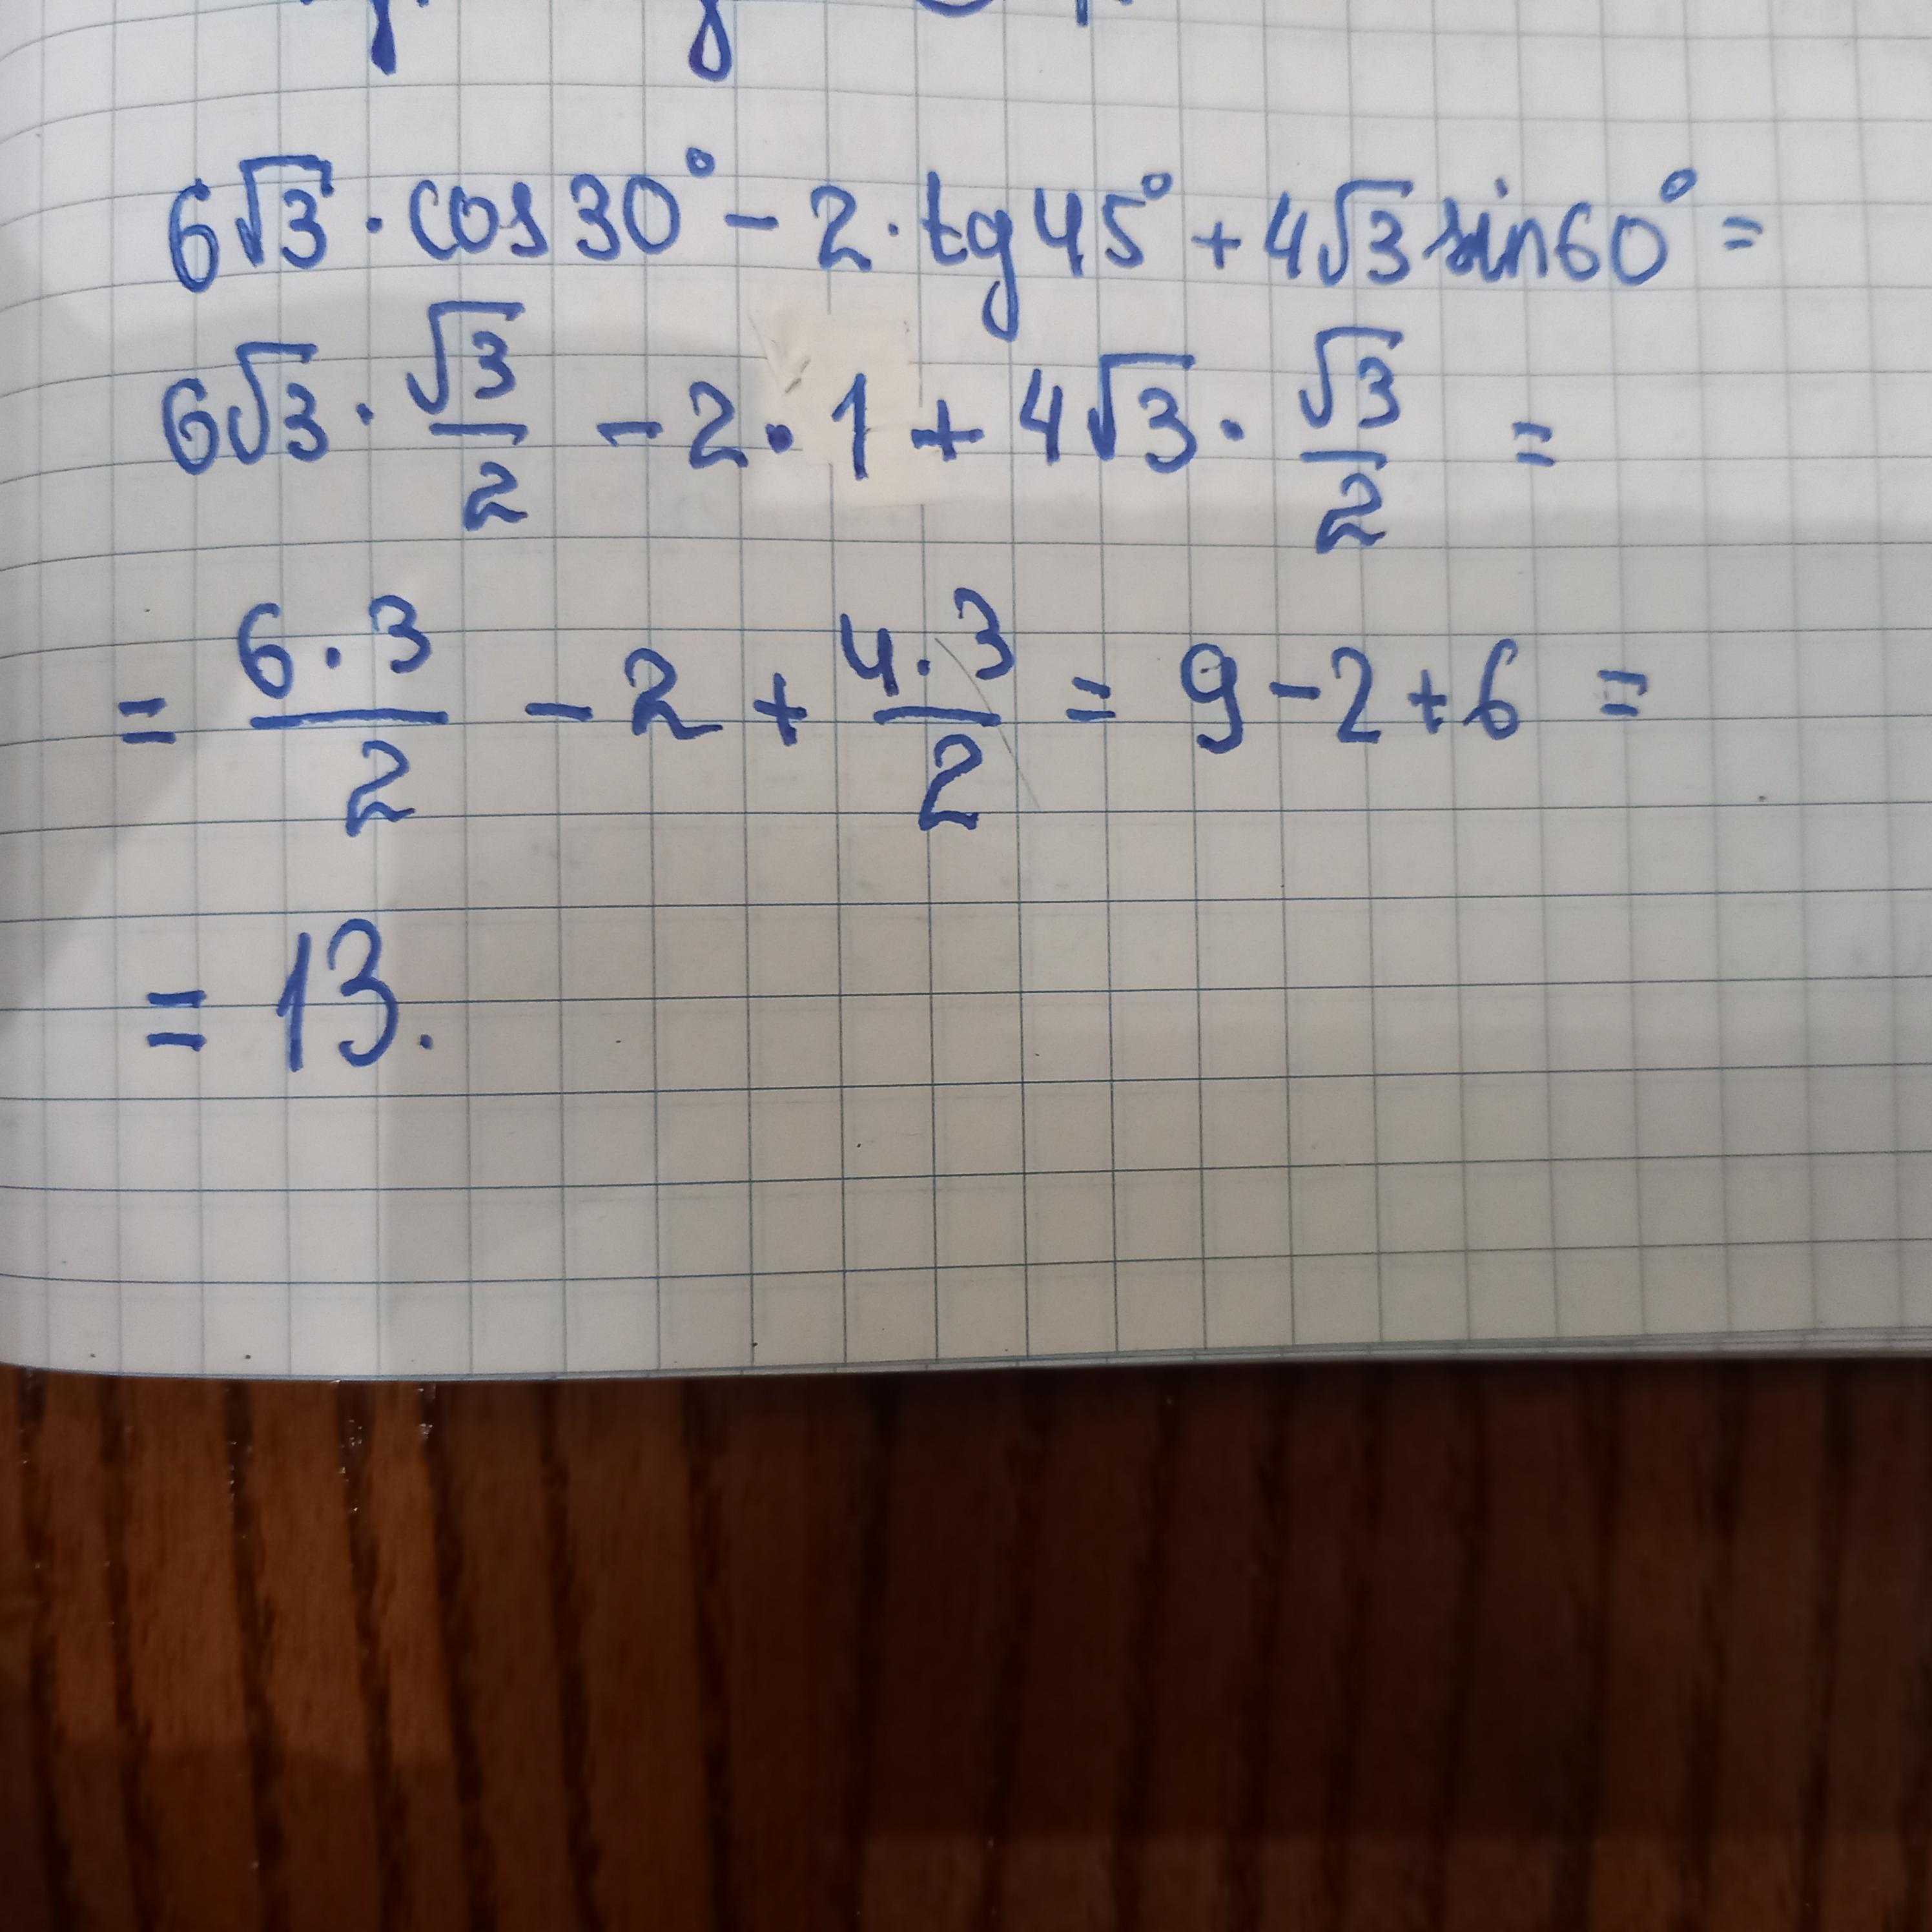 6√3 · cos 30° - 2 · tg 45° + 4√3 sin 60° =
6√3 · √3/2 - 2 · 1 + 4√3 · √3/2 =
= 6 · 3/2 - 2 + 4 · 3/2 = 9 - 2 + 6 =
= 13.